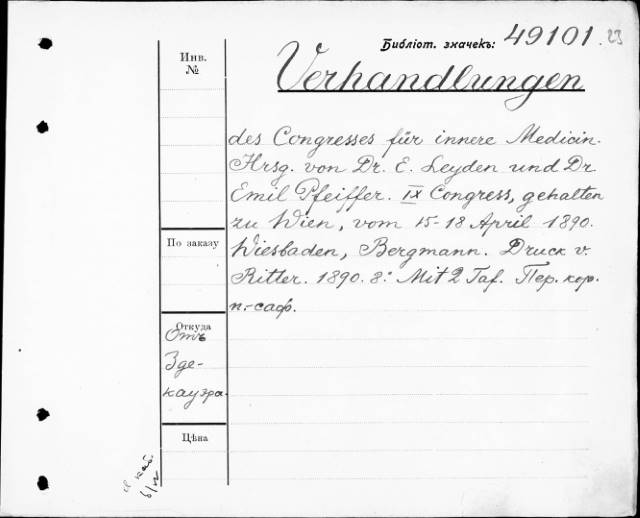 Библіот. значекъ: 49101.23
Инв. №
Verhandlungen
des Congresses für innere Medicin.
Hrsg. von Dr. E. Leyden und Dr
Emil Pfeiffer. IX Congress, gehalten
zu Wien, vom 15-18 April 1890.
По заказу
Wiesbaden, Bergmann. Druck v.
Ritter. 1890. 8º Mit 2 Taf. Пер. кор.
п.-саф.
Откуда
Отъ
Зде-
кауэра.
Цѣна